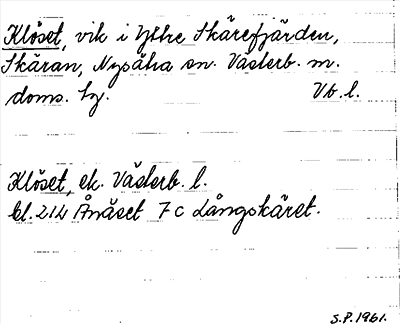 Klöset, vik i Yttre Skärefjärden,
Skäran, Nysätra sn. Västerb. m.
doms. lg. Vb. l.
Klöset, ek. Västerb. l.
bl. 214 Ånäset 7 c Långskäret.
S.P. 1961.